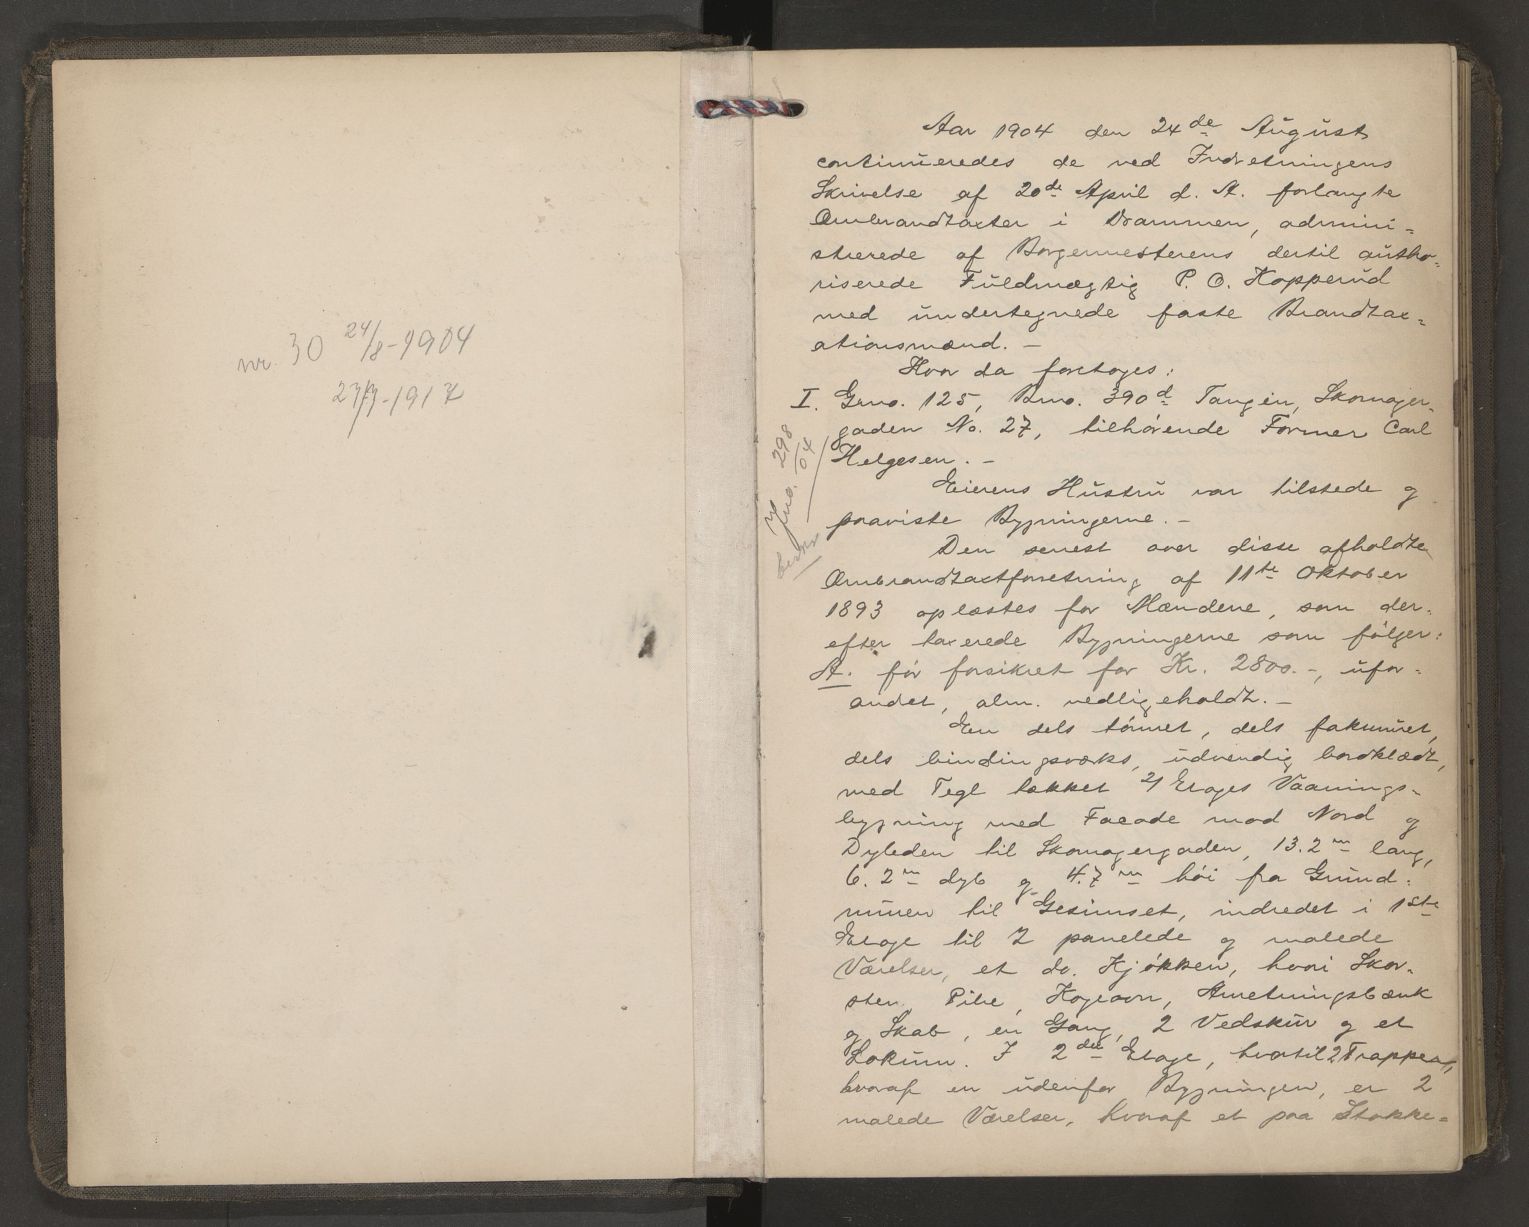 nr. 30 24/8-1904
27/3-1917
Aar 1904 den 24de August
continueredes de ved Indretningens
Skrivelse af 20de April d. A. forlangte
Ombrandtaxter i Drammen, admini-
strerede af Borgermesterens dertil autho-
riserede Fuldmægtig P. O. Kopperud
med undertegnede faste Brandtax-
ationsmænd. -
Hvor da foretoges:
I. Grno. 125, Bno. 390d Tangen, Skomager-
gaden No. 27, tilhörende Former Carl
Helgesen. -
Jno. 298/04
Eierens Hustru var tilstede og
paaviste Bygningerne. -
Den senest over disse afholdte
Ombrandtaxtforretning af 11te Oktober
1893 oplæstes for Mændene, som der-
efter taxerede Bygningerne som fölger:
A. för forsikret for Kr. 2800.-, ufor-
andret, alm. vedligeholdt. -
En dels tömret, dels fakmuret,
dels bindingsværks, udvendig bordklædt,
med Tegl tækket 2/ Etages Vaanings-
bygning med Facade mod Nord og
Dybden til Skomagergaden, 13.2 m lang,
6.2 m dyb og 4.7 m höi fra Grund-
muren til Gesimset, indredet i 1ste
Etage til 2 panelede og malede
Værelser, et do. Kjökken, hvori Skor-
sten Pibe, Kogeovn, Anretningsbænk
og Skab, en Gang, 2 Vedskur og et
Lokum. I 2den Etage, hvortil 2 Trapper,
hvoraf en udenfor Bygningen, er 2
malede Værelser, hvoraf et paa Stokke-